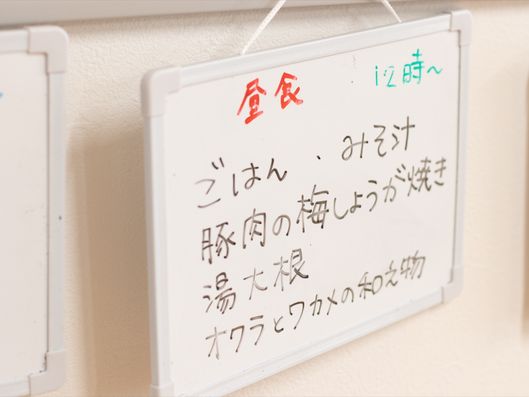 昼食 12時〜
ごはん、みそ汁
豚肉の梅しょうが焼き
湯大根
オクラとワカメの和え物